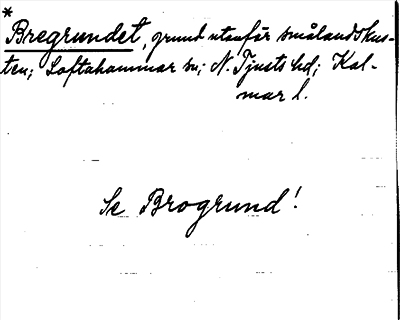 *
Bregrundet, grund utanför smålandskus-
ten; Loftahammar sn; N. Tjusts hd; Kal-
mar l.
Se Brogrund!